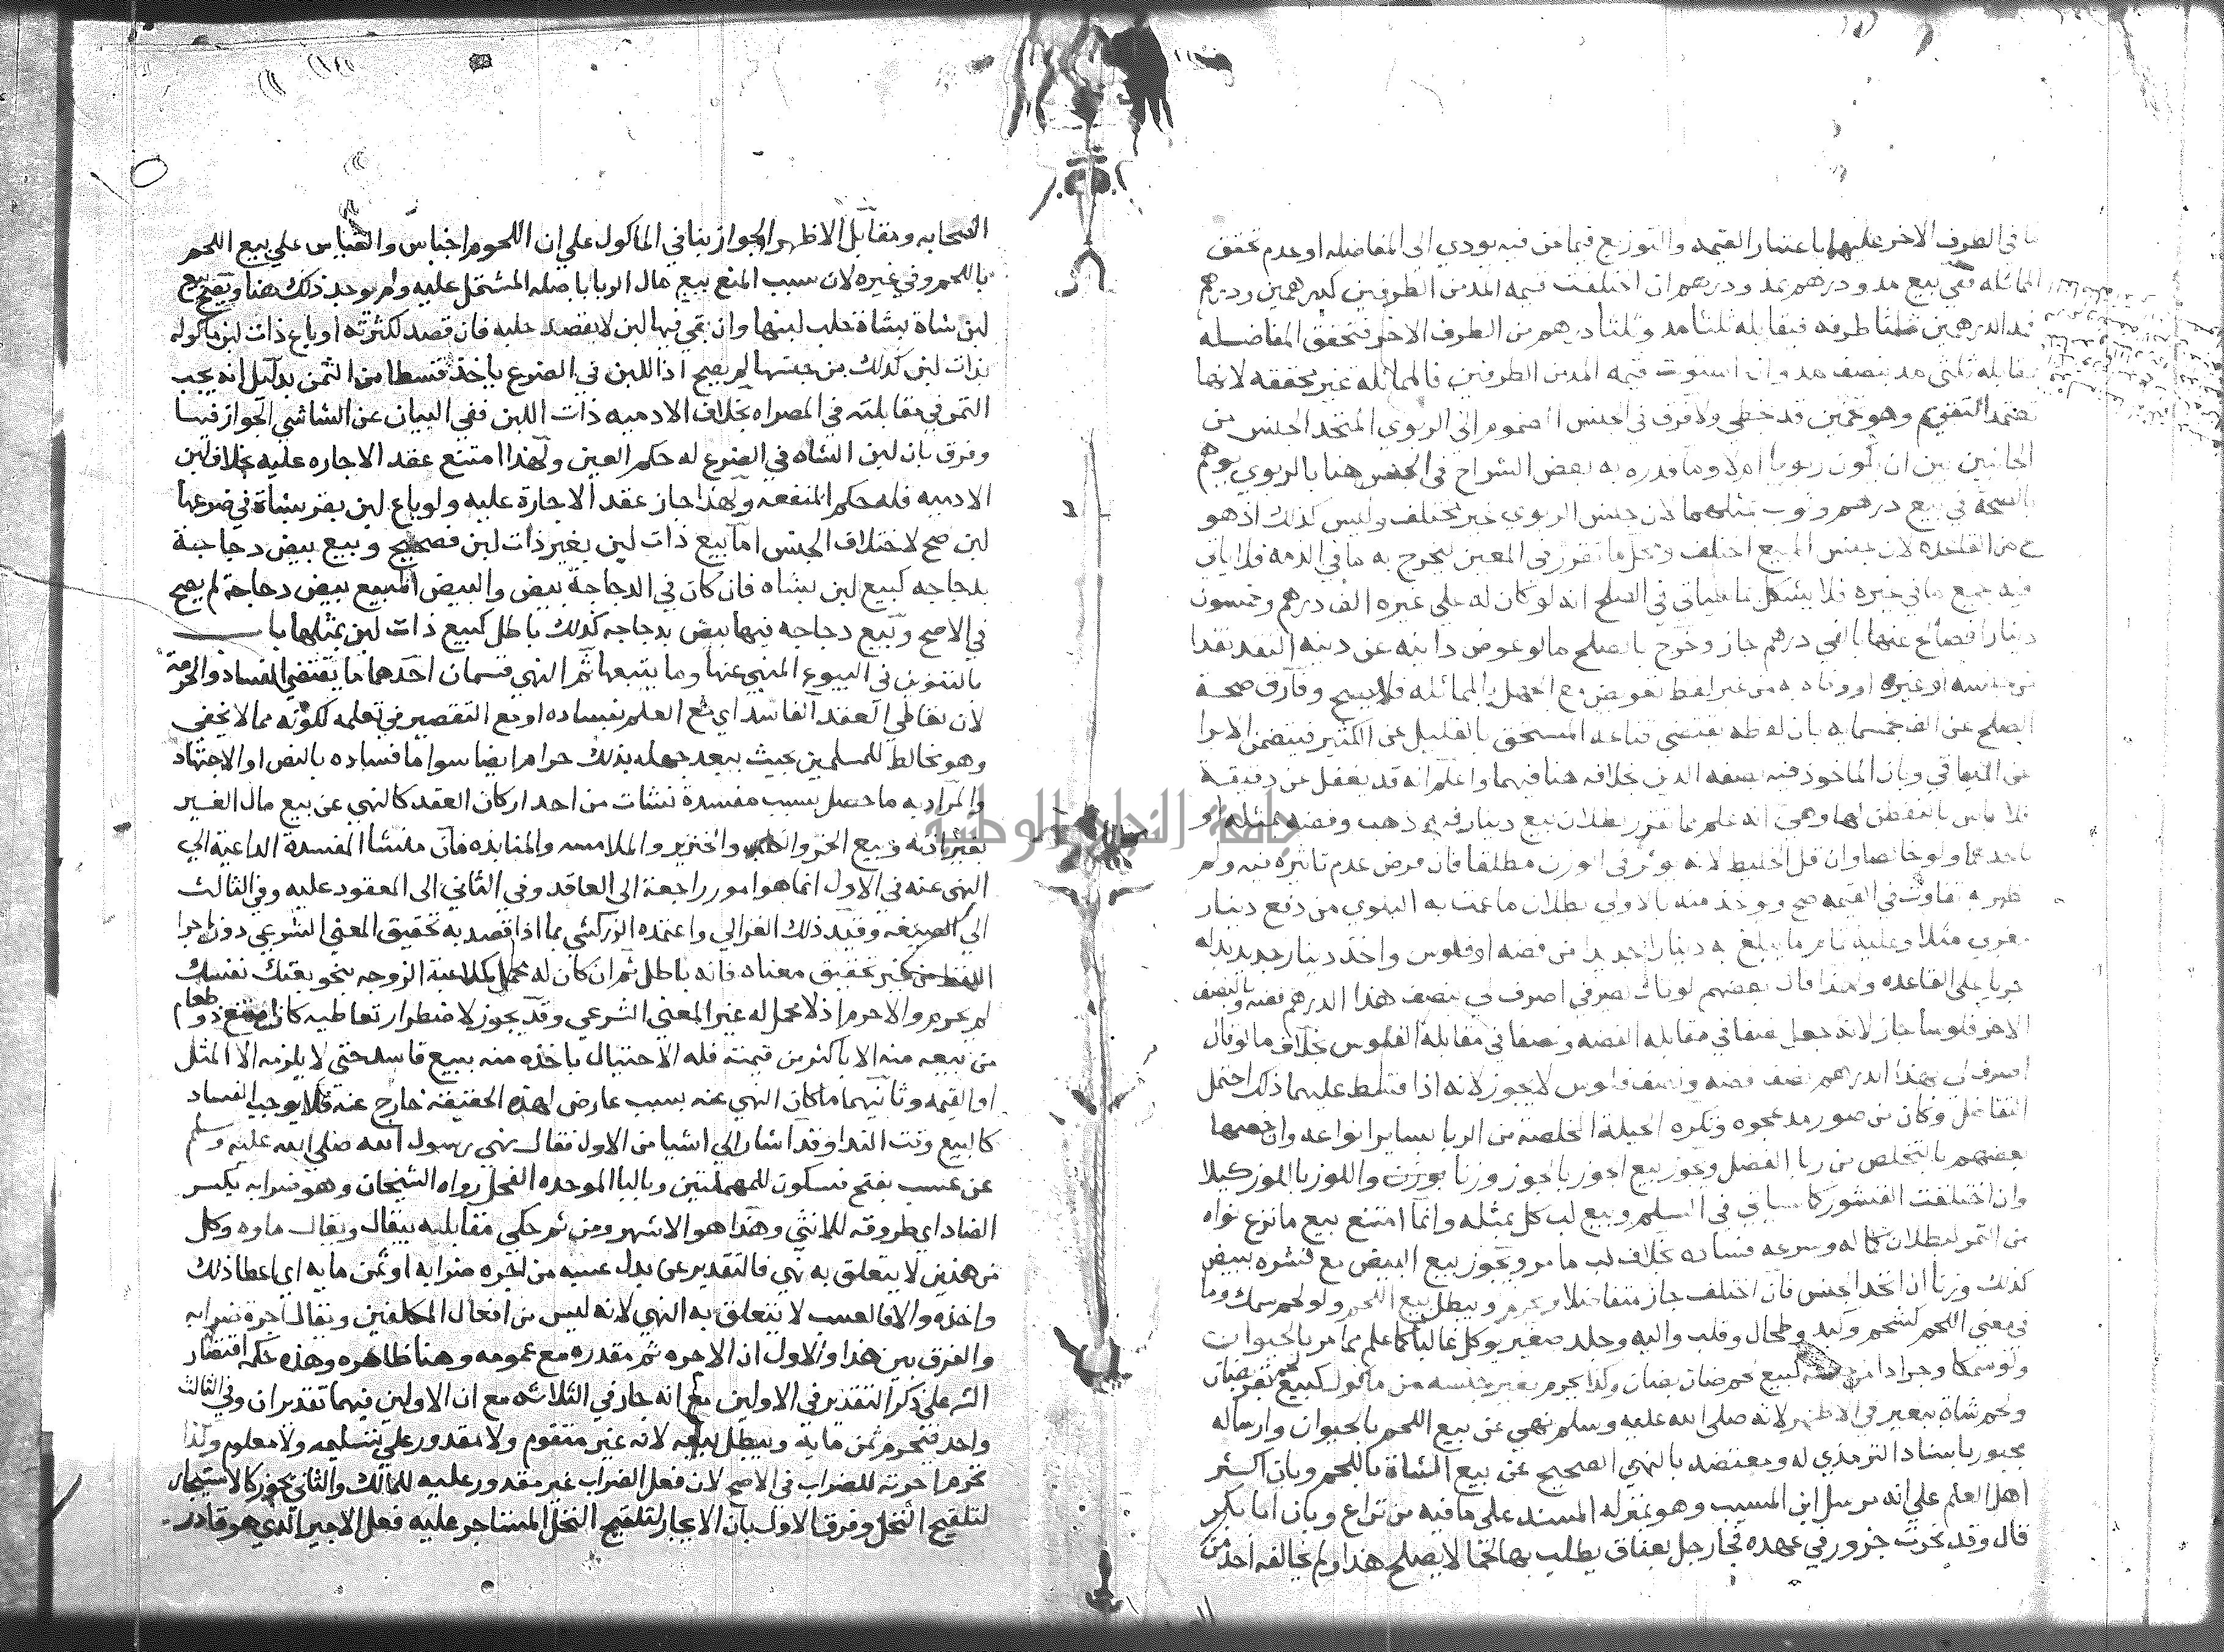 ما في الطرف الاخر عليهما باعتبار القيمه والتوزيع فيما نحن فيه يودي الي المفاضله او عدم تحقق
المماثله ففي بيع مد ودرهم بمد ودرهم ان اختلفت قيمه المد من الطرفين كدرهمين ودرهم
فمد الدرهمين ثلثا طرفه فيقابله ثلثا مد وثلثا درهم من الطرف الاخر فتحقق المفاضله
مقابله ثلثي مد بنصف مد وان استوت قيمه المد من الطرفين فالمماثله غير محققه لانها
تعتمد التقويم وهو تخمين قد يخطي ولا فرق في الجنس المضموم الي الربوي المتحد الجنس من
الجانبين بين ان يكون ربويا ام لا وما قدره به بعض الشراح في الجنس هنا بالربوي يوهم
الصحة في بيع درهم وثوب بمثلهما لان جنس الربوي غير مختلف وليس كذلك اذ هو
من القاعده لان جنس المبيع اختلف ومحل ما تقرر في المعين ليخرج به ما في الذمه فلا ياتي
فيه جميع ما في غيره فلا يشكل بما سياتي في الصلح انه لو كان له علي غيره الف درهم وخمسون
دينارا فصالح عنها بالفي درهم جاز وخرج بالصلح ما لو عوض داينه عن دينه النقد نقدا
من جنسه او غيره او وفاه به من غير لفظ تعويض مع الجهل بالمماثله فلا يصح وفارق صحة
الصلح عن الف بخمسمايه بان لفظه يقتضي قناعه المستحق بالقليل عن الكثير فيتضمن الابرا
عن الباقي وبان الماخوذ فيه بصفه الدين خلافه هنا فيهما واعلم انه قد يغفل عن دقيقة
فلا باس بالتفطن لها وهي انه علم مما تقرر بطلان بيع دينار فيه ذهب وفضه بمثله او
باحدهما ولو خالصا وان قل الخليط لانه يوثر في الوزن مطلقا فان فرض عدم تاثيره فيه ولم
يظهر به تفاوت في القيمه صح ويوخذ منه بالاولي بطلان ما عمت به البلوي من دفع دينار
مغربي مثلا وعليه تمام ما يبلغ به دينارا جديدا من فضه او فلوس واخذ دينار جديد بدله
جريا علي القاعده ولهذا قال بعضهم لو قال لصيرفي اصرف لي بنصف هذا الدرهم فضه وبالنصف
الاخر فلوسا جاز لانه جعل نصفا في مقابله الفضه ونصفا في مقابلة الفلوس بخلاف ما لو قال
اصرف لي بهذا الدرهم نصف فضه ونصف فلوس لا يجوز لانه اذا قسط عليهما ذلك احتمل
التفاضل وكان من صور مد عجوه وتكره الحيلة المخلصة من الربا بساير انواعه وان خصها
بعضهم بالتخلص من ربا الفضل ويجوز بيع الجوز بالجوز وزنا بوزن واللوز باللوز كيلا
وان اختلفت القشور كما سياتي في السلم وبيع لب كل بمثله وانما امتنع بيع ما نزع نواه
من التمر لبطلان كماله وسرعه فساده بخلاف لب ما مر ويجوز بيع البيض مع قشره ببيض
كذلك وزنا ان اتحد الجنس فان اختلف جاز متفاضلا ويحرم ويبطل بيع اللحم ولو لحم سمك وما
في معني اللحم كشحم وكبد وطحال وقلب واليه وجلد صغير يوكل غالبا كما علم مما مر بالحيوان
ولو سمكا وجرادا من جنسه كبيع لحم ضان بضان وكذا يحرم بغير جنسه من ماكول كبيع لحم بقر بضان
ولحم شاة ببعير في الاظهر لانه صلي الله عليه وسلم نهي عن بيع اللحم بالحيوان وارساله
مجبور باسناد الترمذي له ومعتضد بالنهي الصحيح عن بيع الشاة باللحم وبان اكثر
اهل العلم علي انه مرسل ابن المسيب وهو بمنزله المسند علي ما فيه من نزاع وبان ابا بكر
قال وقد نحرت جزور في عهده فجا رجل بعناق يطلب بها لحما لا يصلح هذا ولم يخالفه احد من
الصحابه ومقابل الاظهر الجواز بنا في الماكول علي ان اللحوم اجناس والقياس علي بيع اللحم
باللحم وفي غيره لان سبب المنع بيع مال الربا باصله المشتمل عليه ولم يوجد ذلك هنا ويصح بيع
لبن شاة بشاة حلب لبنها وان بقي فيها لبن لا يقصد حلبه فان قصد لكثرته او باع ذات لبن ماكوله
بذات لبن كذلك من جنسها لم يصح اذ اللبن في الضرع ياخذ قسطا من الثمن بدليل انه يجب
التمر في مقابلته في المصراه بخلاف الادميه ذات اللبن ففي البيان عن الشاشي الجواز فيها
وفرق بان لبن الشاه في الضرع له حكم العين ولهذا امتنع عقد الاجاره عليه بخلاف لبن
الادميه فله حكم المنفعه ولهذا جاز عقد الاجارة عليه ولو باع لبن بقر بشاة في ضرعها
لبن صح لاختلاف الجنس اما بيع ذات لبن بغير ذات لبن فصحيح وبيع بيض دجاجة
بدجاجه كبيع لبن بشاه فان كان في الدجاجة بيض والبيض المبيع ببيض دجاجة لم يصح
في الاصح وبيع دجاجه فيها بيض بدجاجه كذلك باطل كبيع ذات لبن بمثلها باب
بالتنوين في البيوع المنهي عنها وما يتبعها ثم النهي قسمان احدهما ما يقتضي الفساد والحرمة
لان تعاطي العقد الفاسد اي مع العلم بفساده او مع التقصير في تعلمه لكونه مما لا يخفي
وهو مخالط للمسلمين بحيث يبعد جهله بذلك حرام ايضا سوا ما فساده بالنص او الاجتهاد
والمراد به ما حصل بسبب مفسدة نشات من احد اركان العقد كالنهي عن بيع مال الغير
بغير اذنه وبيع الخمر والخنزير والملامسه والمنابذه فان منشا المفسدة الداعية الي
النهي عنه في الاول انما هو امور راجعة الي العاقد وفي الثاني الي المعقود عليه وفي الثالث
الي الصيغه وقيد ذلك الغزالي واعتمده الزركشي بما اذا قصد به تحقيق المعني الشرعي دون اجرا
اللفظ من غير تحقيق معناه فانه باطل ثم ان كان له محمل كملاعبة الزوجه بنحو بعتك نفسك
لم يحرم والا حرم اذ لا محمل له غير المعني الشرعي وقد يجوز لاضطرار تعاطيه كان امتنع ذو طعام
من بيعه منه الا باكثر من قيمته فله الاحتيال باخذه منه ببيع فاسد حتي لا يلزمه الا المثل
او القيمه وثانيهما ما كان النهي عنه بسبب عارض لهذه الحقيقة خارج عنه فلا يوجب الفساد
كالبيع وقت الندا وقد اشار الي اشيا من الاول فقال نهي رسول الله صلي الله عليه وسلم
عن عسب بفتح فسكون للمهملتين وبالبا الموحده الفحل رواه الشيخان وهو ضرابه بكسر
الضاد اي طروقه للانثي وهذا هو الاشهر ومن ثم حكي مقابليه بيقال ويقال ماوه وكل
من هذين لا يتعلق به نهي فالتقدير عن بدل عسبه من اجره ضرابه او ثمن مايه اي اعطا ذلك
واخذه والا فالعسب لا يتعلق به النهي لانه ليس من افعال المكلفين ويقال اجرة ضرابه
والفرق بين هذا والاول ان الاجره ثم مقدره مع عمومه وهنا ظاهره وهذه حكمه اقتصار
الشر علي ذكر التقدير في الاولين مع انه جار في الثلاثه مع ان الاولين فيهما تقديران وفي الثالث
واحد فتحرم ثمن مايه ويبطل بيعه لانه غير متقوم ولا مقدور علي تسليمه ولا معلوم وكذا
تحرم اجرته للضراب في الاصح لان فعل الضراب غير مقدور عليه للمالك والثاني يجوز كالاستيجار
لتلقيح النخل وفرق الاول بان الايجار لتلقيح النخل المستاجر عليه فعل الاجير الذي هو قادر
جامعة النجاح الوطنية